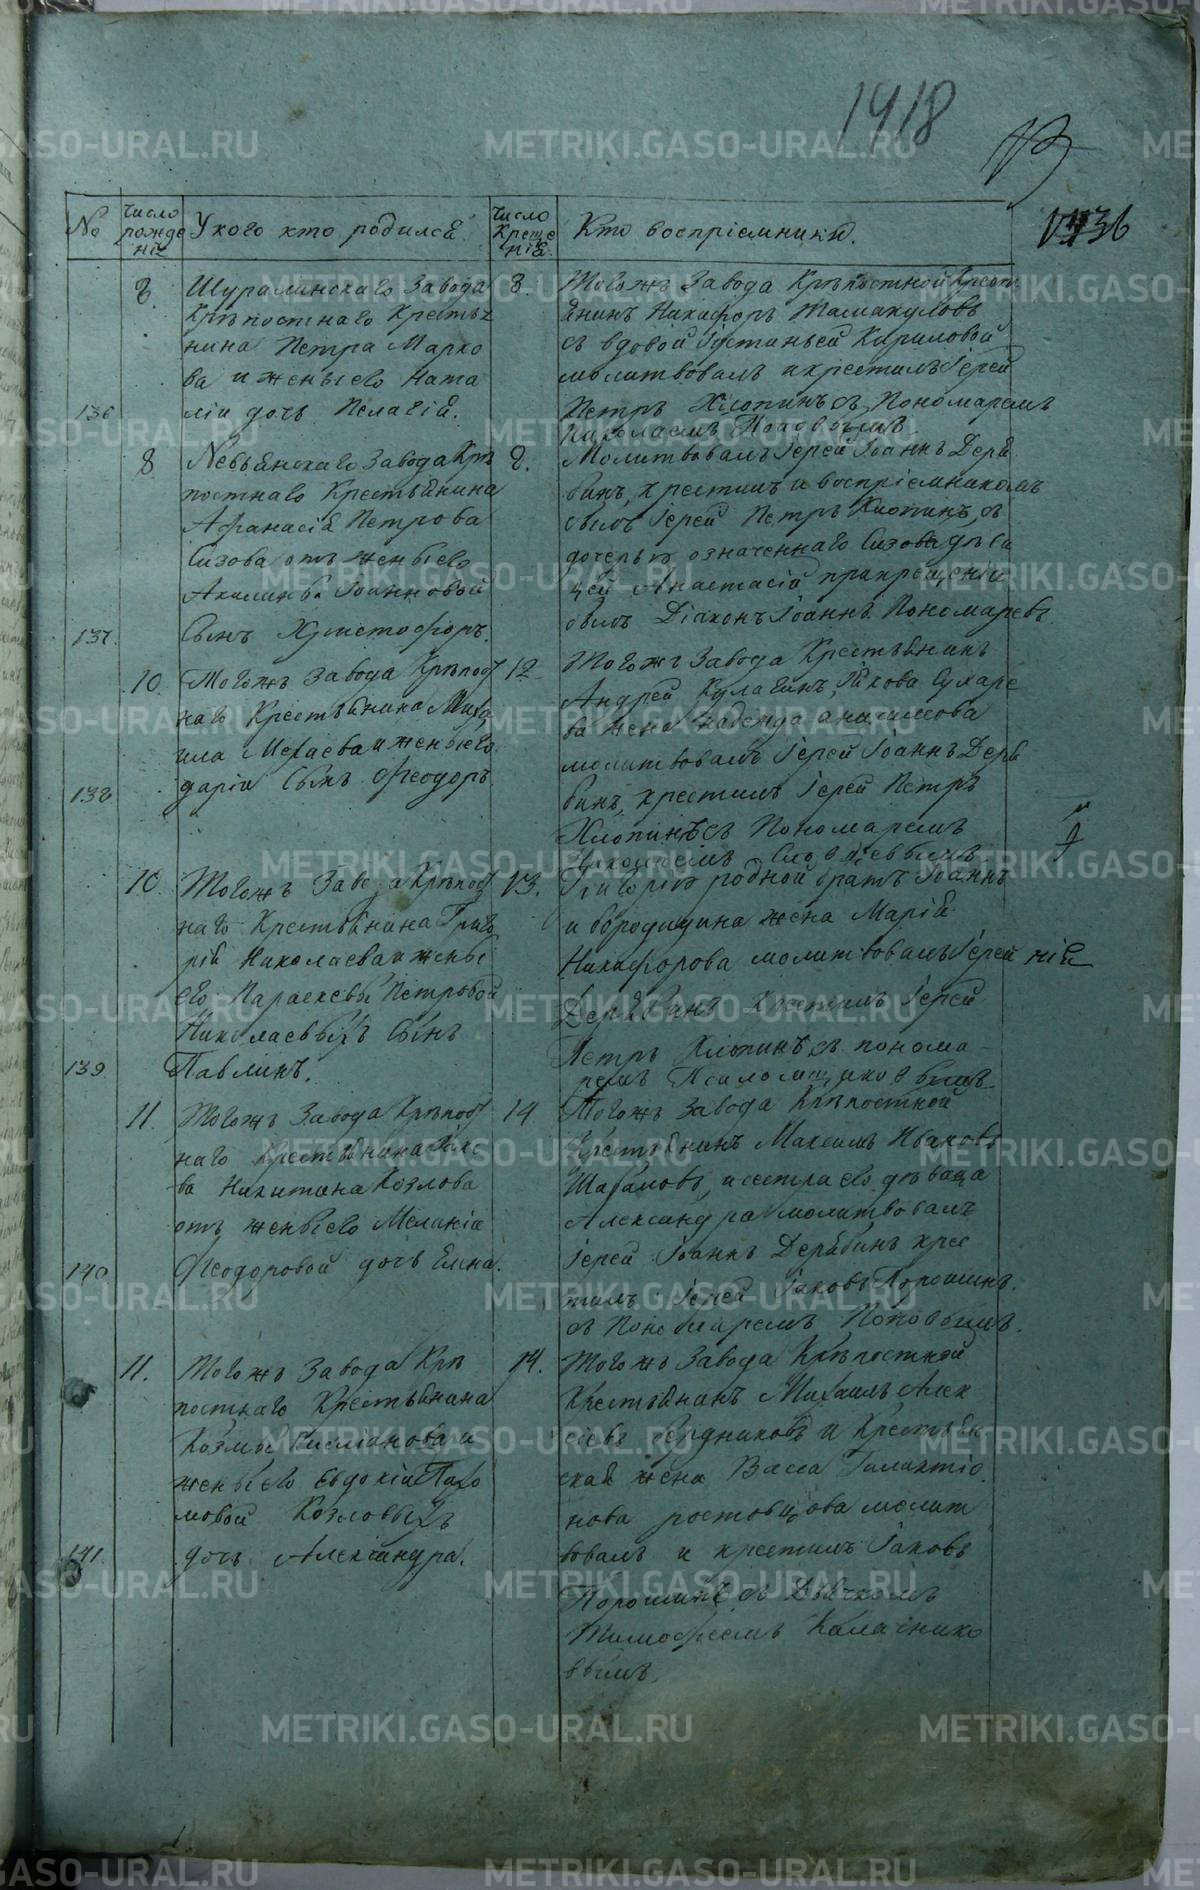 1418
736
№
Число рожденія
У кого кто родился.
Число Крещенія
Кто воспріемники.
8.
Шуралинскаго Завода
Крѣпостнаго Крестья
нина Петра Марко
ва и жены его Ната
136
ліи дочь Пелагія.
8.
Тогожъ Завода Крѣпостной Крест
янинъ Никифоръ Тамакуловъ
съ вдовой Іустиньей Кириловой
молитвовалъ и крестилъ Іерей
Петръ Хлопинъ съ Пономаремъ
Николаемъ Поповымъ
8
Невьянскаго Завода Крѣ
постнаго Крестьянина
Афанасія Петрова
Сизова отъ жены его
Акилины Іоанновой
137.
Сынъ Христофоръ.
8.
Молитвовалъ Іерей Іоаннъ Деря
бинъ, крестилъ и воспріемникомъ
былъ Іерей Петръ Хлопинъ, съ
дочерью означеннаго Сизова дѣви
цей Анастасій, при крещеніи
былъ Діаконъ Іоаннъ Пономаревъ
10.
Тогожъ Завода Крѣпост
наго Крестьянина Миха
ила и жены его
138
Даріи Сынъ Феодоръ.
12
Тогожъ Завода Крестьянинъ
Андрей Кулагинъ, Іякова Сухаре
ва жена Надежда Анисимова
молитвовалъ Іерей Іоаннъ Деря
бинъ, крестилъ Іерей Петръ
Хлопинъ съ Пономаремъ
Николаемъ
10.
Тогожъ Завода Крѣпост
наго Крестьянина Григо
рій Николаева и жены
его Параскевы Петровой
Николаевыхъ Сынъ
139
Павлинъ.
13.
Григорія родной братъ Іоаннъ
и Бородицина жена Марія
Никифорова молитвовалъ Іерей
Дерябинъ Крестилъ Іерей
Петръ Хлопинъ съ понома
ремъ Псаломщиковымъ
11.
Тогожъ Завода Крѣпост
наго Крестьянина Іяк
ва Никитина Козлова
отъ жены его Меланіи
140
Феодоровой дочь Елена.
14
Тогожъ Завода Крѣпостной
Крестьянинъ Максимъ Ивановъ
и сестра его дѣвица
Александра молитвовалъ
Іерей Іоаннъ Дерябинъ крес
тилъ Іерей Іаковъ Порошинъ.
съ Пономаремъ Поповымъ.
11.
Тогожъ Завода Крѣ
постнаго Крестьянина
Козмы и
жены его Евдокіи Пахо
мовой Козловыхъ
141.
дочь Александра.
14.
Тогожъ Завода Крѣпостной
Крестьянинъ Михаилъ Алек
сіевъ Бердниковъ и Крестьян
ская жена Васса Галактіо
нова Ростовцова молит
вовалъ и крестилъ Іаковъ
Порошинъ съ Дьячкомъ
Тимофеемъ Калачнико
вымъ.